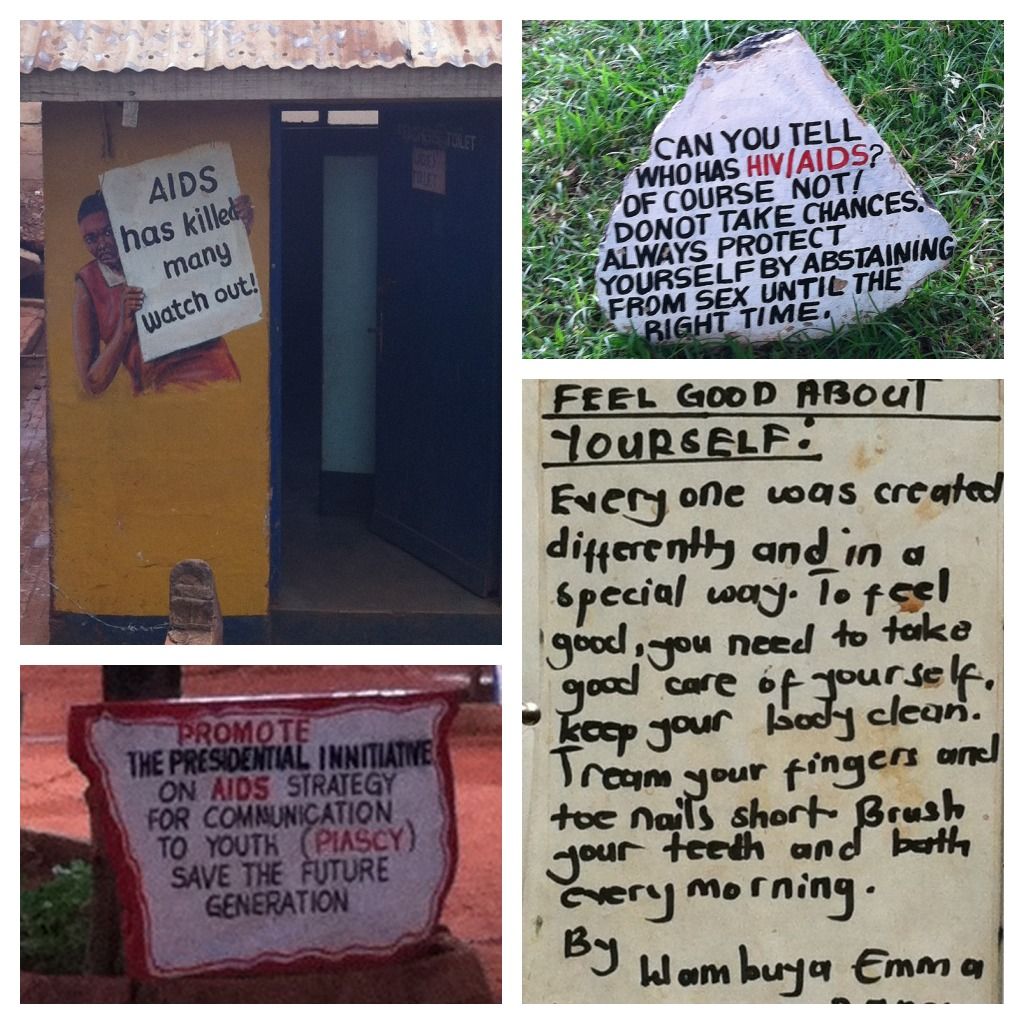 AIDS
has killed
many
watch out!
TOILET
CAN YOU TELL
WHO HAS HIV/AIDS?
OF COURSE NOT!
DONOT TAKE CHANCES.
ALWAYS PROTECT
YOURSELF BY ABSTAINING
FROM SEX UNTIL THE
RIGHT TIME.
PROMOTE
THE PRESIDENTIAL INNITIATIVE
ON AIDS STRATEGY
FOR COMMUNICATION
TO YOUTH (PIASCY)
SAVE THE FUTURE
GENERATION
FEEL GOOD ABOUT
YOURSELF:
Every one was created
differently and in a
special way. To feel
good, you need to take
good care of yourself.
keep your body clean.
Tream your fingers and
toe nails short. Brush
your teeth and bath
every morning.
By
Wambuya Emma